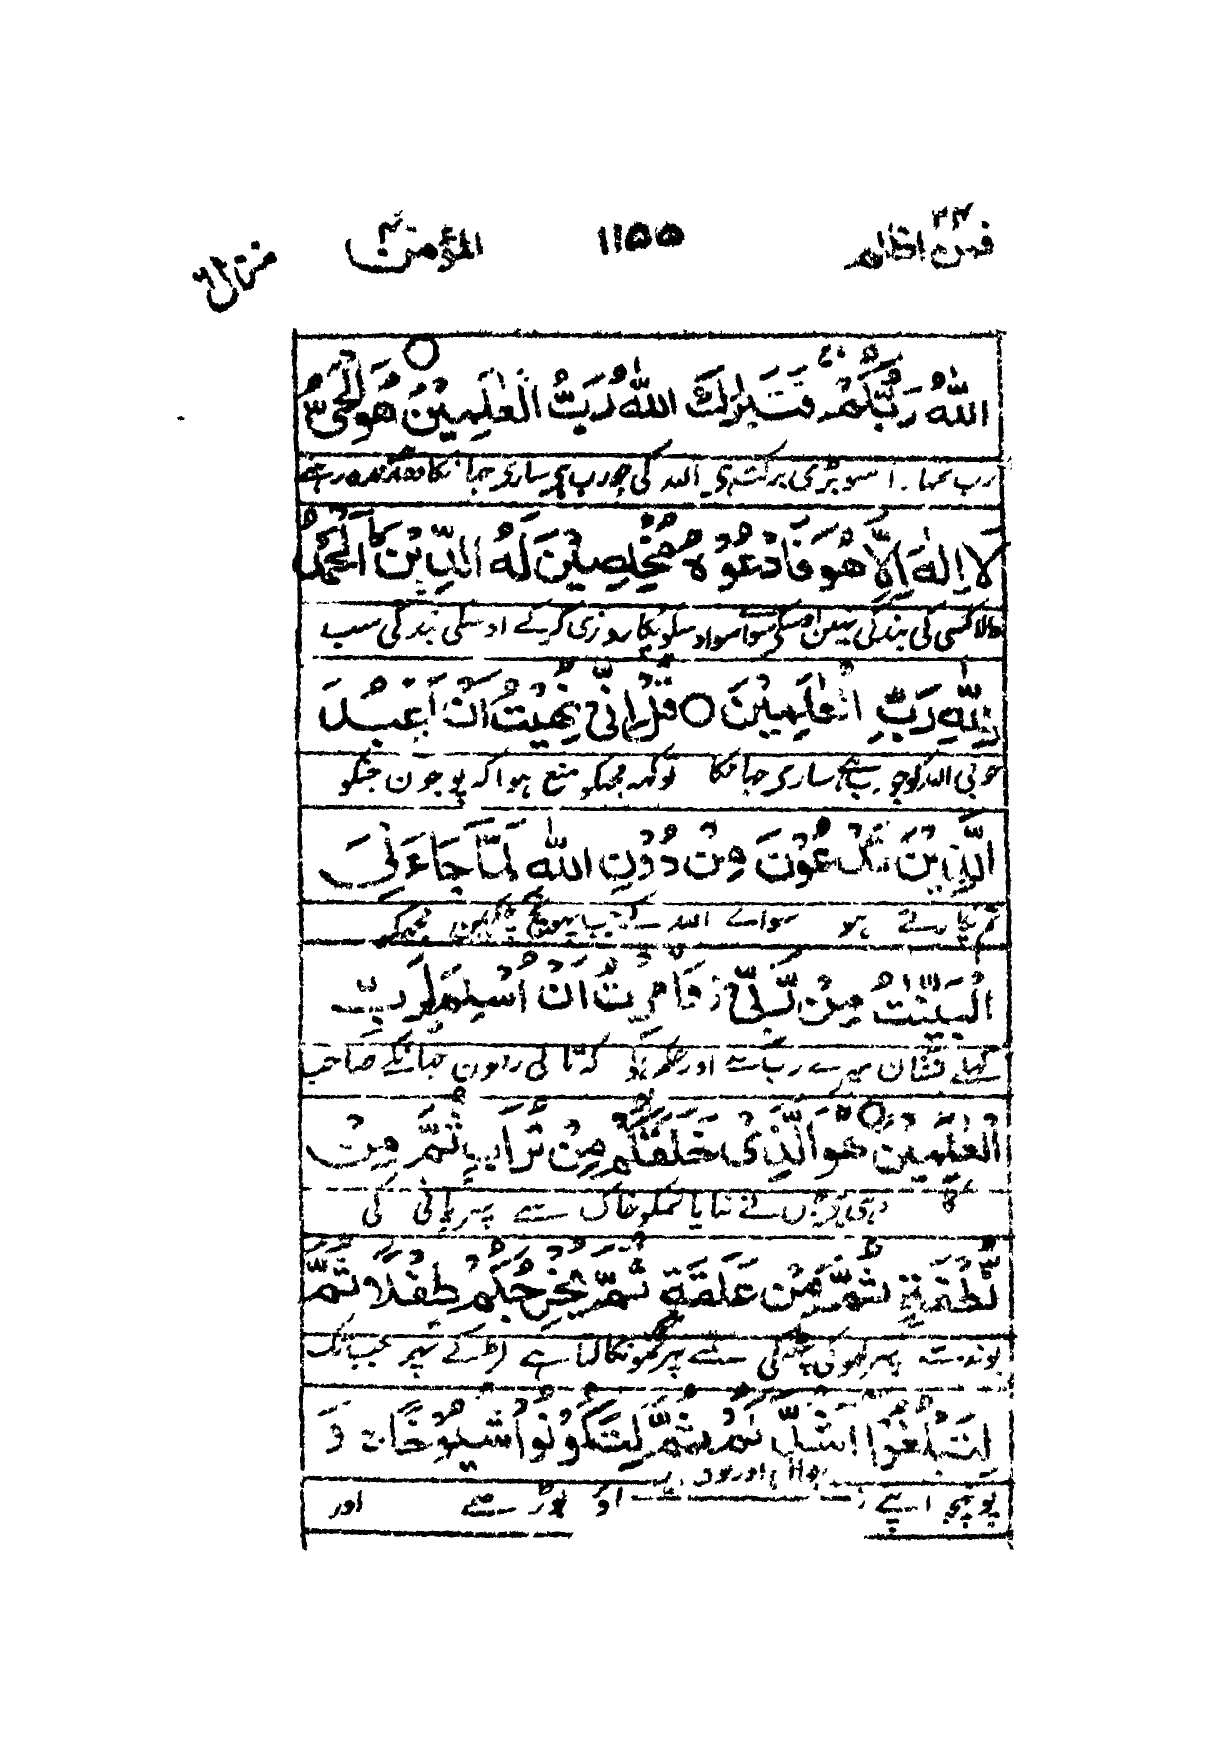 فمن اظلم ٢٤ ١١٥٥ المؤمن ٤٠ منزل ٦
اللّٰهُ رَبُّكُمْ فَتَبٰرَكَ اللّٰهُ رَبُّ الْعٰلَمِيْنَ ○ هُوَ الْحَيُّ
رب اسو بڑی برکت ہی اللہ کی جو رب ہی ساری
لَا اِلٰهَ اِلَّا هُوَ فَادْعُوْهُ مُخْلِصِيْنَ لَهُ الدِّيْنَ اَلْحَمْدُ
کسی کی بندگی نہین اوسکے سوا سو اوسکو پکارو نری کر کے اوسکی بندگی سب
لِلّٰهِ رَبِّ الْعٰلَمِيْنَ ○ قُلْ اِنِّيْ نُهِيْتُ اَنْ اَعْبُدَ
خوبی اللہ کو جو رب ہے ساری جہانکا تو کہہ مجھکو منع ہوا کہ پوجون جنکو
الَّذِيْنَ تَدْعُوْنَ مِنْ دُوْنِ اللّٰهِ لَمَّا جَاءَنِيَ
تم پکارتے ہو سواے اللہ کے جب پہونچ چکین مجھکو
الْبَيِّنٰتُ مِنْ رَّبِّيْ وَاُمِرْتُ اَنْ اُسْلِمَ لِرَبِّ
کھلے نشان میرے رب سے اور حکم ہوا کہ تابع رہون جہانکے صاحب
الْعٰلَمِيْنَ ○ هُوَ الَّذِيْ خَلَقَكُمْ مِنْ تُرَابٍ ثُمَّ مِنْ
کا وہی ہی جس نے بنایا تمکو خاک سے پہر پانی کی
نُّطْفَةٍ ثُمَّ مِنْ عَلَقَةٍ ثُمَّ يُخْرِجُكُمْ طِفْلًا ثُمَّ
بوند سے پہر لہو کی پھٹکی سے پہر تمکو نکالتا ہے لڑکے پہر جب تک
لِتَبْلُغُوْا اَشُدَّكُمْ ثُمَّ لِتَكُوْنُوْا شُيُوْخًا وَ
پہونچو اپنے اور